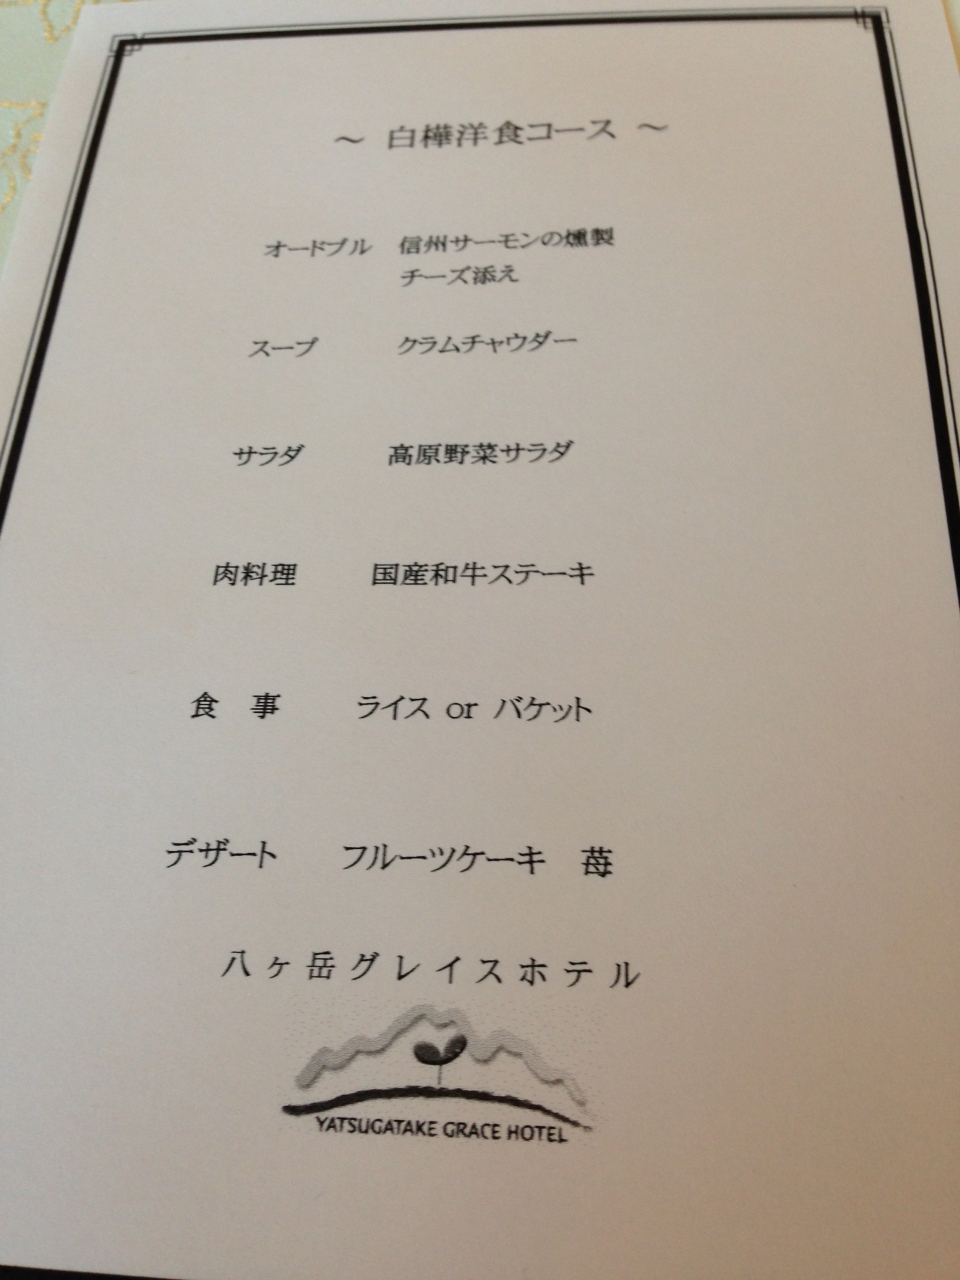 ～ 白樺洋食コース ～
オードブル 信州サーモンの燻製
チーズ添え
スープ クラムチャウダー
サラダ 高原野菜サラダ
肉料理 国産和牛ステーキ
食 事 ライス or バケット
デザート フルーツケーキ 苺
八ヶ岳グレイスホテル
YATSUGATAKE GRACE HOTEL